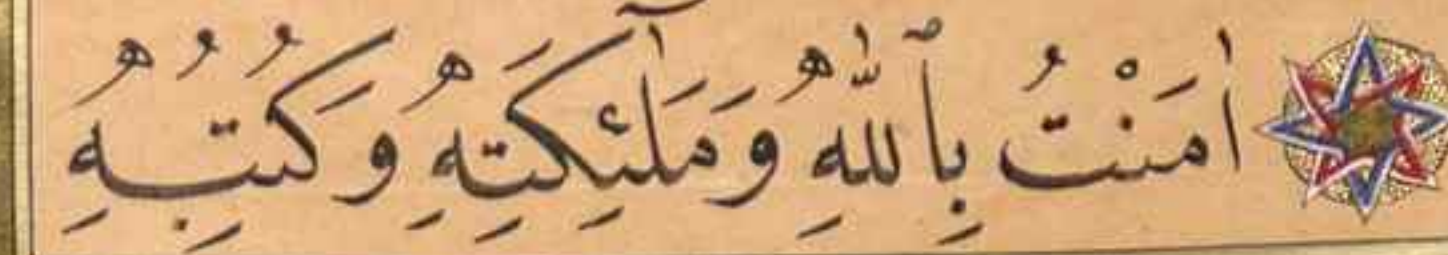 اٰمَنْتُ بِٱللّٰهِ وَمَلٰٓئِكَتِهِ وَكُتُبِهِ